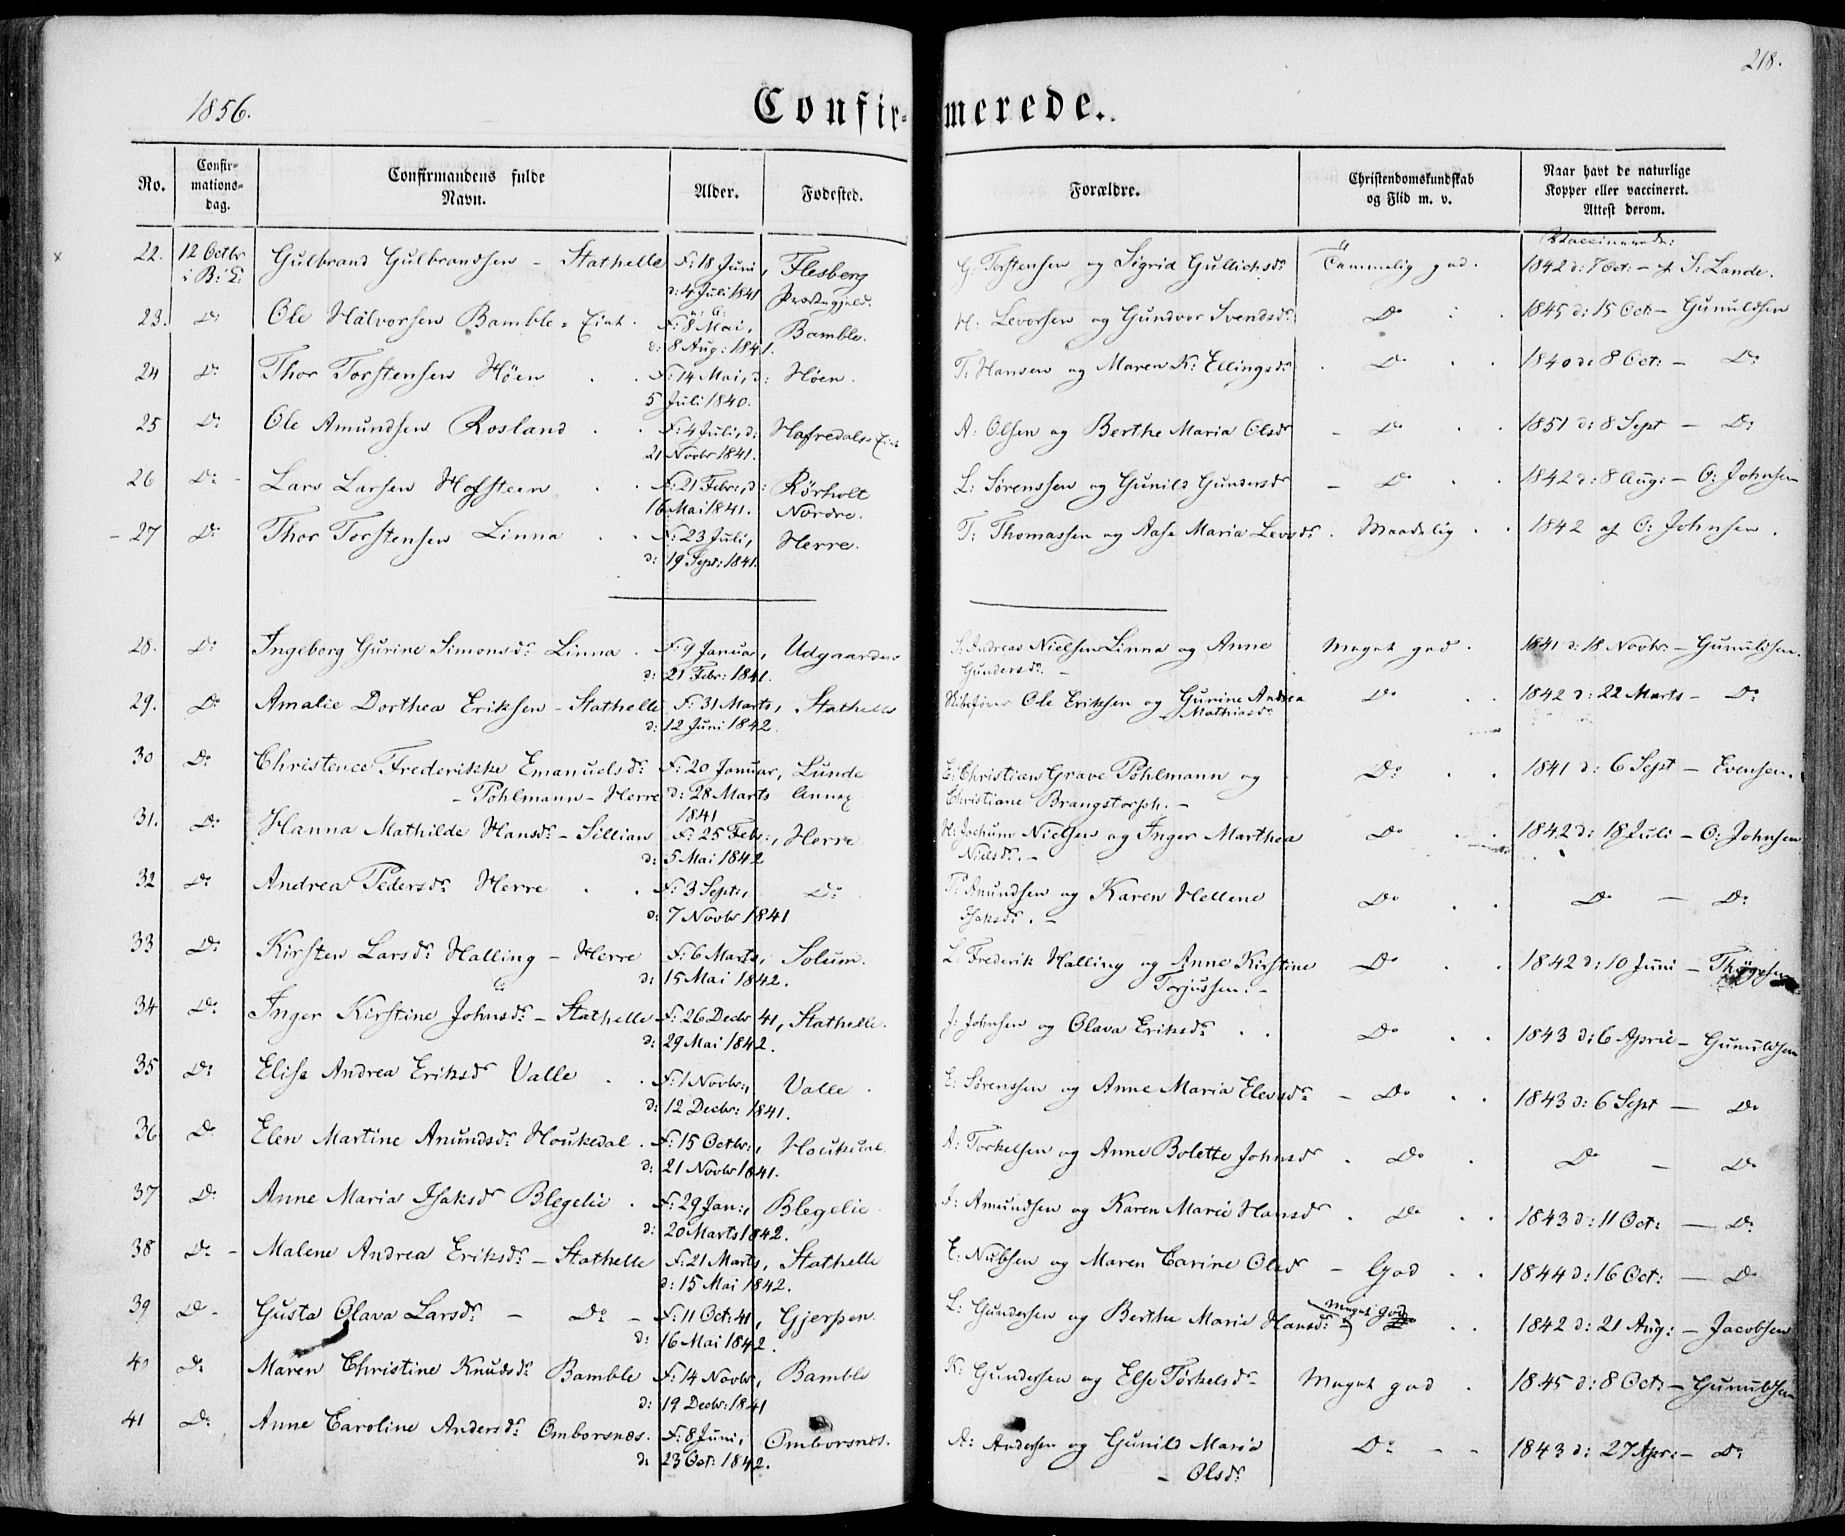 218.
1856.
Confir-merede.
No. Confir-mations-dag. Confirmandens fulde Navn. Alder. Fødested. Forældre. Christendomskundskab og Flid m. v. Naar havt de naturlige Kopper eller vaccineret. Attest derom.
Vaccinerede:
22. 12 Octbr i B: K: Gulbrand Gulbrandsen - Stathelle F: 18 Juni, d: 4 Juli 1841 Flesberg Præstegjeld. G: Torstensen og Sigrid Gullichsdr Tammelig god. 1842 d: 7 Oct: - af S: Lande.
23. Do Ole Halvorsen Bamble - Eiet. F: 8 Mai, d: 8 Aug: 1841. Bamble. H: Levorsen og Gundvor Svendsdr Do 1845 d: 15 Oct: - Gunuldsen
24 Do Thor Torstensen Höen F: 14 Mai, d: 5 Juli 1840. Höen. T: Hansen og Maren K: Ellingsdr Do 1840 d: 8 Oct: - Do
25 Do Ole Amundsen Rosland F: 4 Juli, d: 21 Novbr 1841. Hafredals Eie A: Olsen og Berthe Maria Olsdr - Do 1851 d: 8 Sept - Do
26 Do Lars Larsen Hofsteen F: 21 Febr:, d: 16 Mai 1841. Rörholt Nordre. L: Sørenssen og Gunild Gundersdr - Do 1842 d: 8 Aug: - O: Johnsen
- 27 Do Thor Torstensen Linna F: 23 Juli, d: 19 Sept: 1841. Herre. T: Thomassen og Aase Maria Levsdr. Maadelig 1842 af O: Johnsen.
28. Do Ingeborg Gurine Simonsdr Linna F: 9 Januar, d: 21 Febr: 1841. Udgaarden S: Andreas Nielsen Linna og Anne Gundersdr. - Meget god. 1841 d: 18 Novbr - Gunuldsen.
29. Do Amalie Dorthea Eriksen - Stathelle F: 31 Marts, d: 12 Juni 1842. Stathelle Ole Eriksen og Gurine Andrea Mathiasdr Do 1842 d: 22 Marts - Do
30 Do Christence Frederikke Emanuelsdr - Pöhlmann - Herre F: 20 Januar, d: 28 Marts 1841 Lunde Annex E: Christian Grave Pöhlmann og Christiane Brangstorph. - Do 1841 d: 6 Sept - Evensen.
31. Do Hanna Mathilde Hansdr - Sillian F: 25 Febr:, d: 5 Mai 1842 Herre H: Jochum Nielsen og Inger Marthea Nielsdr. - Do 1842 d: 18 Juli - O: Johnsen
32 Do Andrea Pedersdr Herre F: 3 Sept:, d: 7 Novbr 1841 Do P: Anundsen og Karen Hellene Isaksdr. - Do Do - Do
33 Do Kirsten Larsdr Halling - Herre F: 6 Marts, d: 15 Mai 1842. Solum. L: Frederik Halling og Anne Kirstine Torjussen. - Do 1842 d: 10 Juni - Thögersen
34 Do Inger Kirstine Johnsdr - Stathelle F: 26 Decbr 41, d: 29 Mai 1842. Stathelle. J: Johnsen og Olava Eriksdr Do 1843 d: 6 April - Gunuldsen
35 Do Elise Andrea Eriksdr Valle F: 1 Novbr:, d: 12 Decbr: 1841. Valle. E: Sørenssen og Anne Maria Elevsdr - Do 1843 d: 6 Sept - Do
36 Do Elen Martine Anundsdr Houkedal. F: 15 Octbr:, d: 21 Novbr 1841. Houkedal A: Torkelsen og Anne Bolette Johnsdr. Do Do - Do
37 Do Anne Maria Isaksdr Blegelie F: 29 Jan:, d: 20 Marts 1842. Blegelie I: Amundsen og Karen Marie Hansdr. Do 1843 d: 11 Oct: - Do
38 Do - Malene Andrea Eriksdr - Stathelle F: 21 Marts, d: 15 Mai 1842. Stathelle E: Nubsen og Maren Carine Olsdr - God 1844 d: 16 Oct: - Do
39 Do - Gusta Olava Larsdr - Do - F: 11 Oct: 41, d: 16 Mai 1842. Gjerpen L: Gundersen og Berthe Marie Hansdr Meget god 1842 d: 21 Aug: - Jacobsen
40 Do Maren Christine Knudsdr Bamble F: 14 Novbr, d: 19 Decbr: 1841 Bamble K: Gundersen og Else Torkelsdr - Meget god 1845 d: 8 Oct: - Gunuldsen
41 Do Anne Caroline Andersdr Omborsnæs. F: 8 Juni, d: 23 Oct: 1842. Omborsnæs. A: Andersen og Gunild Maria - Olsdr Do - - 1843 d: 27 Apr: - Do